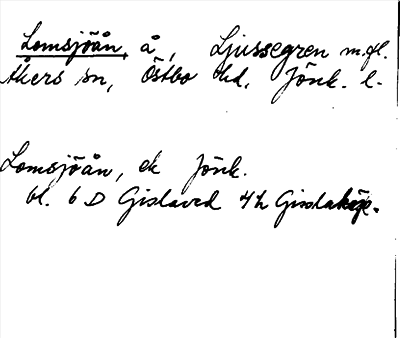 Lomsjöån, å, Ljussegren m.fl.
Åkers sn, Östbo hd, Jönk. l.
Lomsjöån, ek Jönk.
bl. 6 D Gislaved 4 h